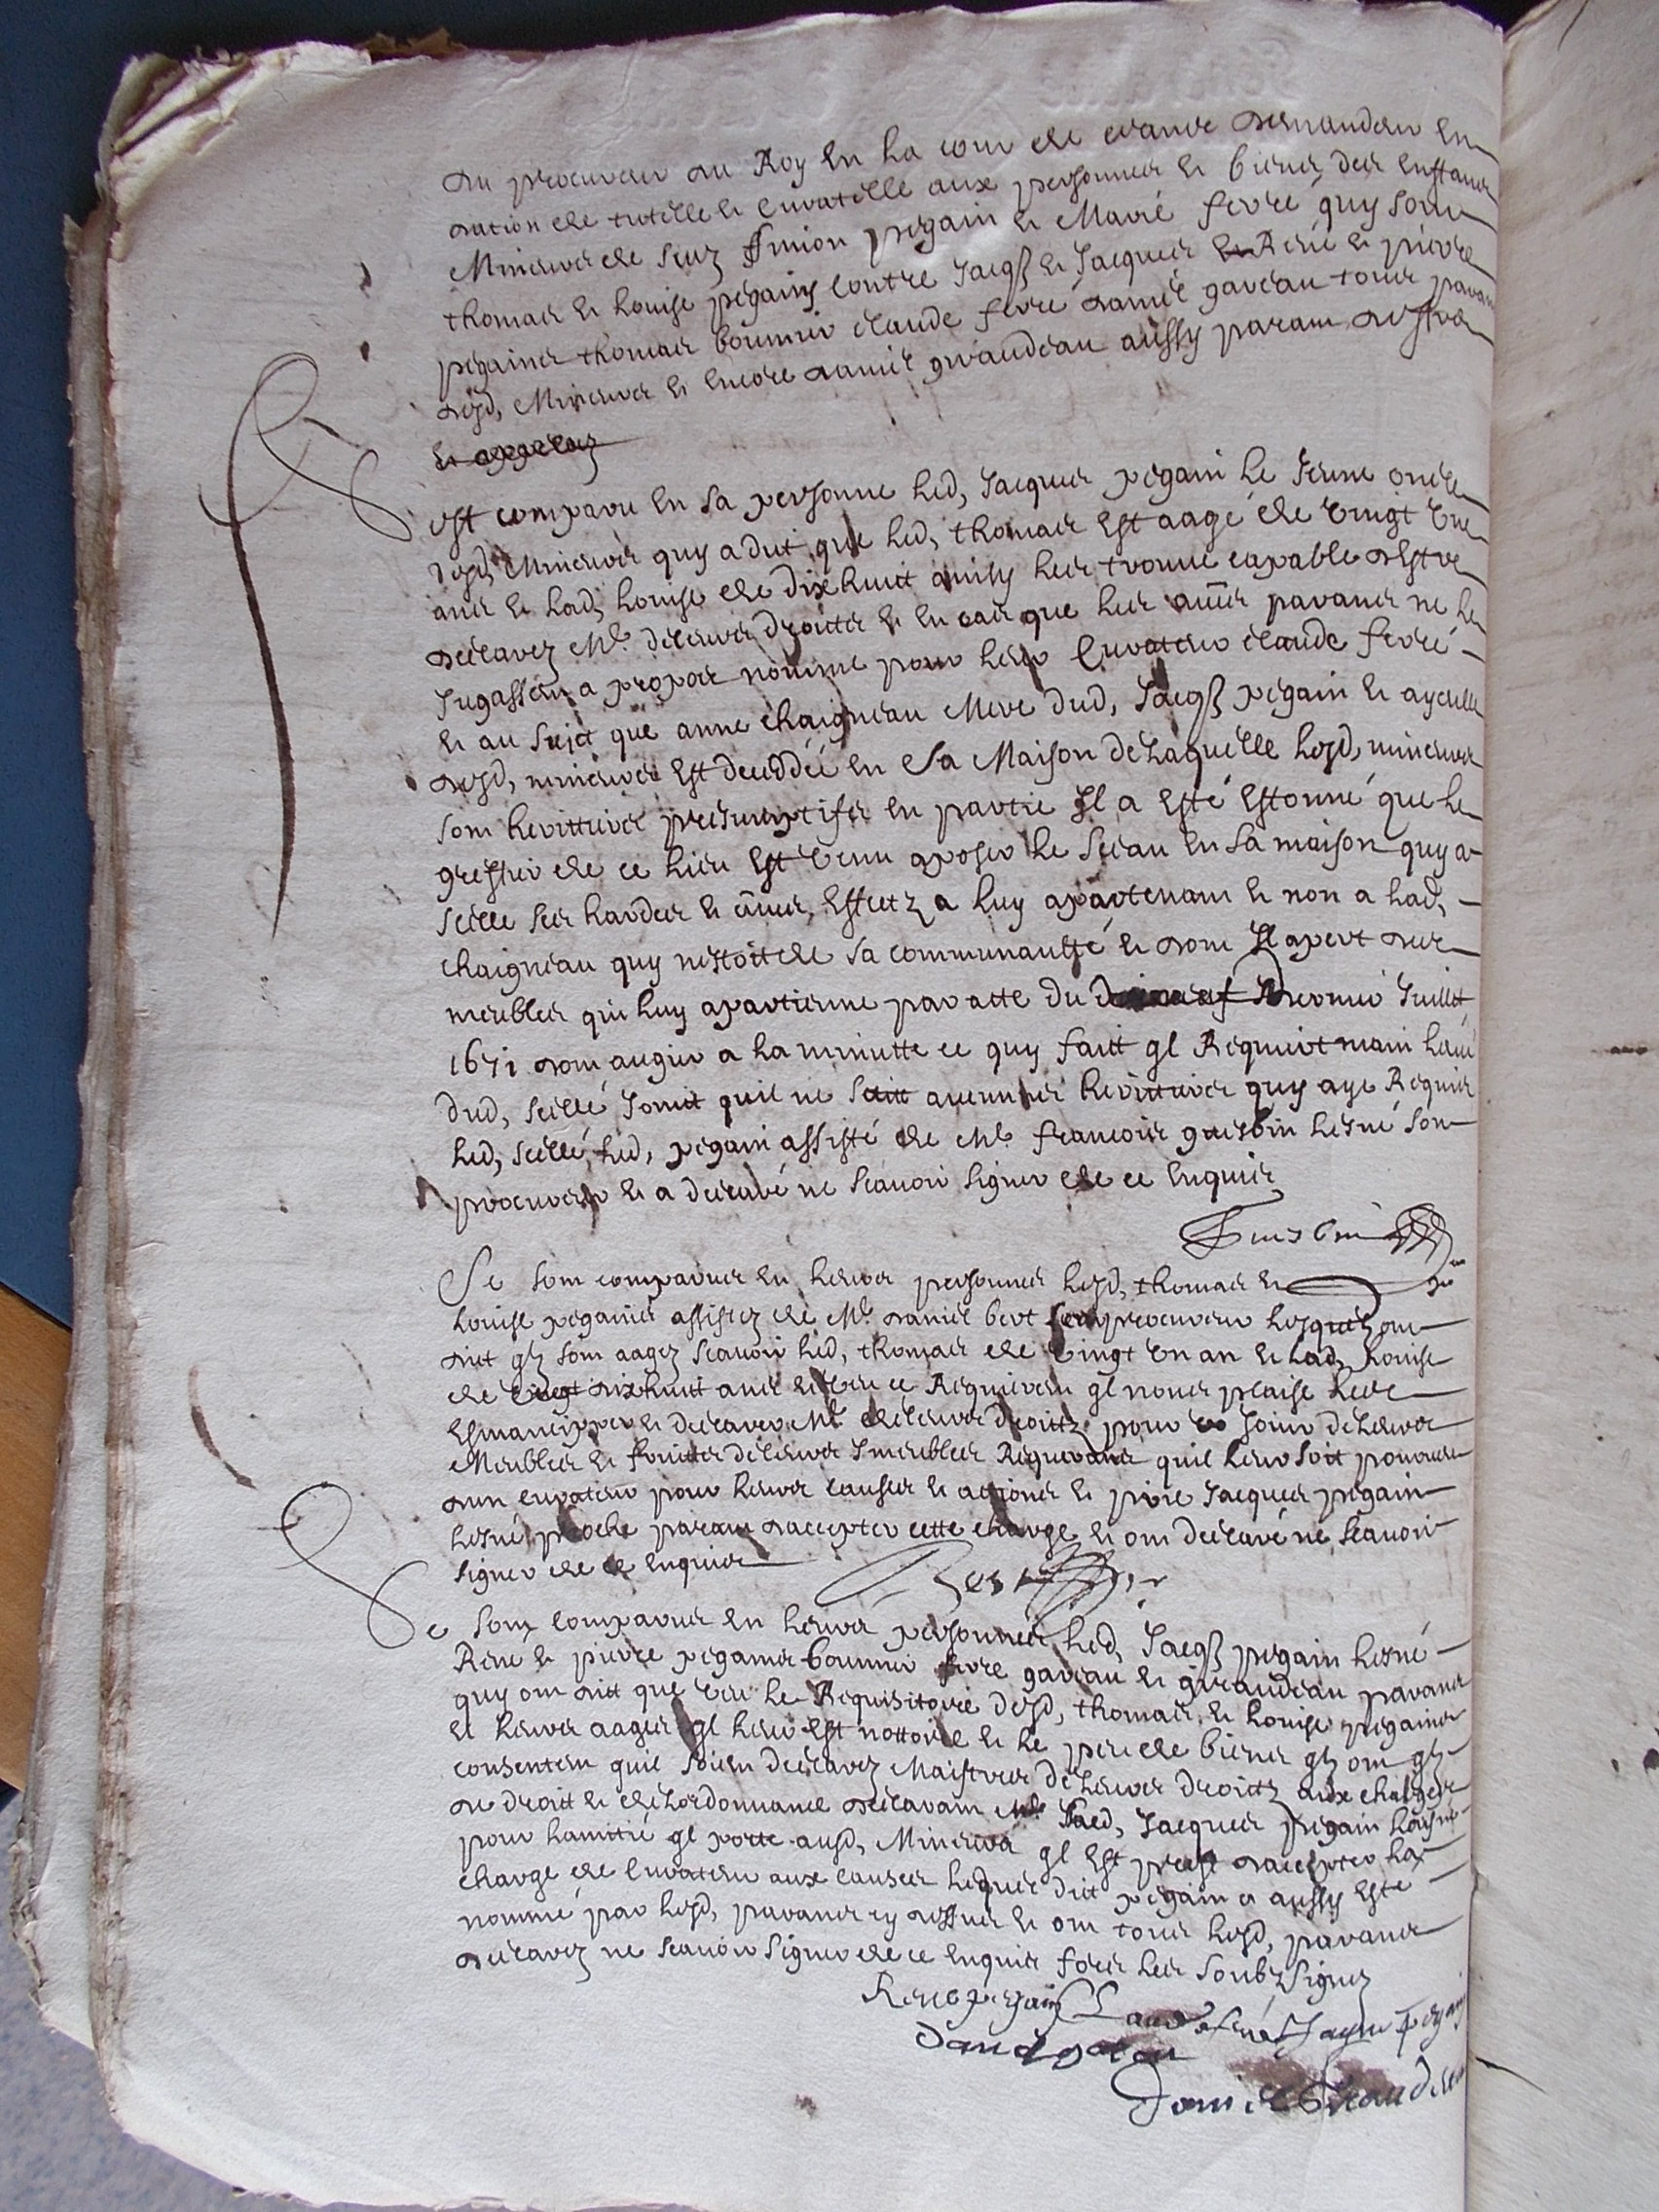 du procureur du Roy en la cour de ceance demandeur en
dation de tutelle et curatelle aux personnes et biens des enfans
Mineurs de feuz Simion pegain et Marie fevre quy sont
thomas et Louise pegains contre Jacqs et Jacques et René et pierre
pegaines thomas bounnin claude fevre daniel gareau tous parans
desd, Mineurs et encore daniel giraudeau aussy parant desd
et appelez
Est comparu en sa personne led, Jacques pegain le Jeune oncle
desd, Mineurs quy a dit que led, thomas Est aagé de vingt une
ans et lad, Louise de dix huit ainsy les trouve capable destre
declarez Me. de leurs droitts et en cas que les autres parans ne le
Jugassent a propos nomme pour leur Curateur claude fevre
et au sujet que anne chaigneau Mere dud, Jacqs pegain et ayeulle
desd, mineurs Est decedée en sa Maison de Laquelle lesd, mineurs
sont herittiers presumptifs en partie Il a esté Estonné que le
greffier de ce lieu Est venu aposer le sceau en sa maison quy a
scellé ses hardes et autres, Effectz a luy apartenant et non a lad,
chaigneau quy nestoit de sa communaulté et dont Il apert des
meubles qui luy apartienne par acte du premier Juillet
1671 dont augier a la minutte ce quy faitt ql Requiert main levée
dud, scellé Joinct quil ne scait aucuns herittiers quy aye Requis
led, scellé, led, pegain assisté de Me francois guesbin lesné son
procureur et a declaré ne scauoir signer de ce Enquis
Guesbin
Se sont comparues en leurs personnes lesd, thomas et
Louise pegaines assistez de Me. daniel bert leur procureur lesquelz ont
dict qlz sont aagez scauoir led, thomas de vingt un an et lad, Louise
de vingt dix huit ans et veu ce Requierent ql nous plaise les
Esmanciper et declarer Me de leurs droitts pour Jouir de leurs
Meubles et fruitts de leurs Imeubles Requerans quil leur soit pourveu
dun curateur pour leurs causes et actions et prie Jacques pegain
lesné proche parant daccepter cette charge et ont declaré ne scauoir
signer de ce Enquis
Bert
Se sont comparues en leurs personnes led, Jacqs pegain lesné
René et pierre pegaines bounnin fevre gareau et giraudeau parans
quy ont ditt que veu le Requisitoire desd, thomas, et Louise pegaines
et leurs aages ql leur est nottoire et le peu de biens qlz ont qlz
consentent quil soient declarez Maistres de leurs droitts aux charges
de droitt et de Lordonnance declarant led, Jacques pegain Laisné
pour Lamitié ql porte ausd, Mineurs ql Est prest daccepter la
charge de Curateur aux causes lequel dit pegain a aussy Esté
nommé par lesd, parans cy dessus et ont tous lesd, parans
declarez ne scauoir signer de ce Enquis fors les soubz signez
Rene pegain Claude fevre Jaque pegain
Daniel gareau
Daniel Giraudeau